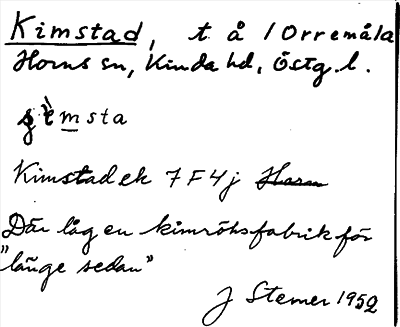 Kimstad, t å / Orremåla
Horns sn, Kinda hd, Östg. l.
msta
Kimstad ek 7F4j
Där låg en kimröksfabrik för
"länge sedan"
J Stemer 1952